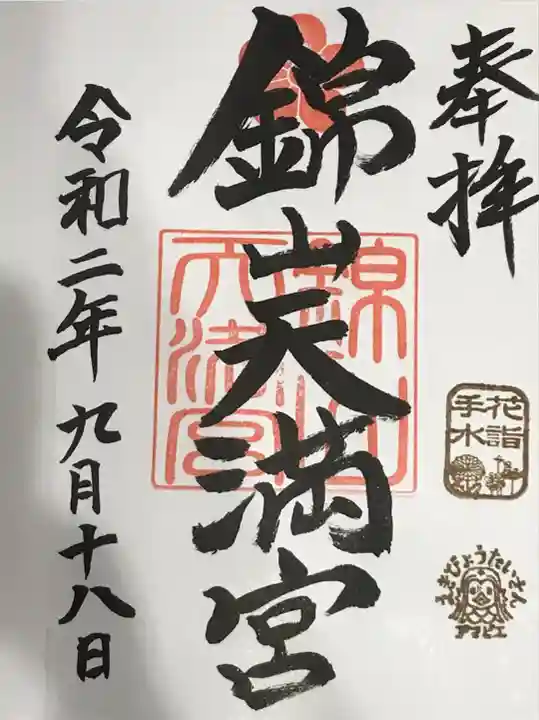 奉拝
錦山天満宮
令和二年九月十八日
錦山
天満宮
花詣
手水
えきびょうたいさん
アマビエ